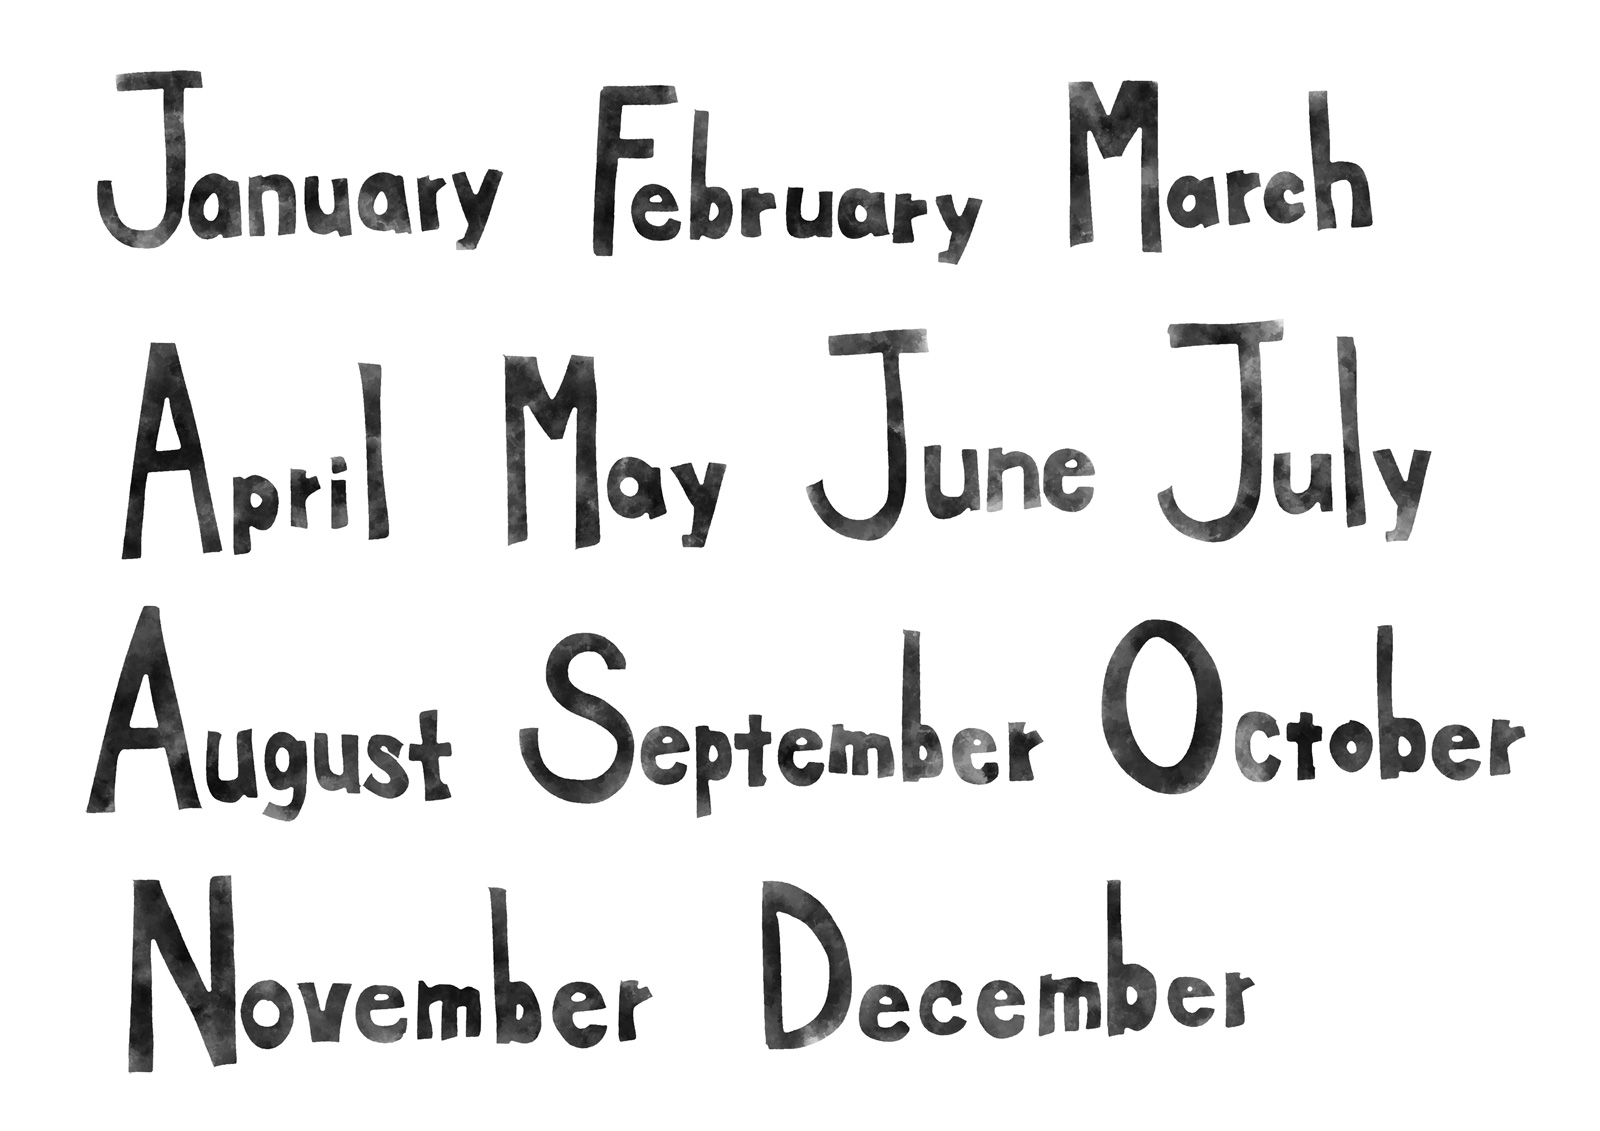 January February March
April May June July
August September October
November December